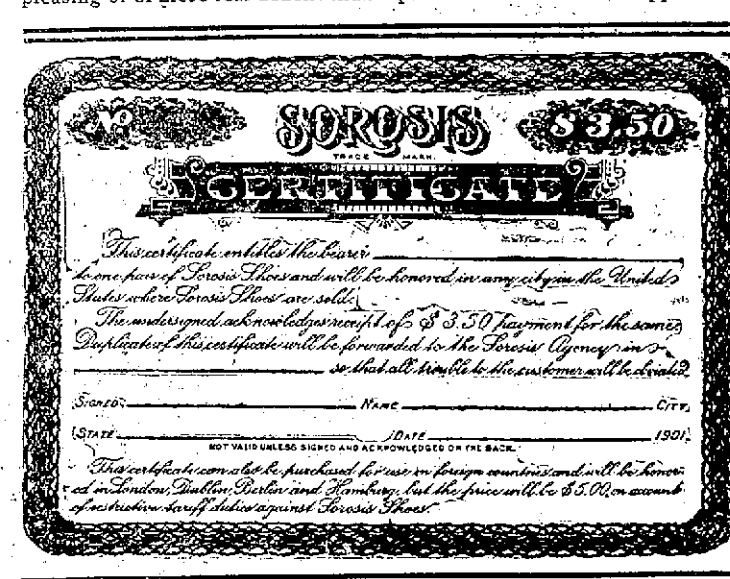 No SOROSIS $3.50
TRADE MARK.
CERTIFICATE
This certificate entitles the bearer
to one pair of Sorosis Shoes and will be honored in any city in the United
States where Sorosis Shoes are sold.
The undersigned acknowledges receipt of $3.50 payment for the same
Duplicate of this certificate will be forwarded to the Sorosis Agency in
so that all trouble to the customer will be
SIGNED NAME CITY
STATE DATE 1901
NOT VALID UNLESS SIGNED AND ACKNOWLEDGED ON THE BACK.
This certificate can also be purchased for use in foreign countries and will be honor-
ed in London, Dublin, Berlin and Hamburg, but the price will be $5.00, on account
of restrictive tariff duties against Sorosis Shoes.